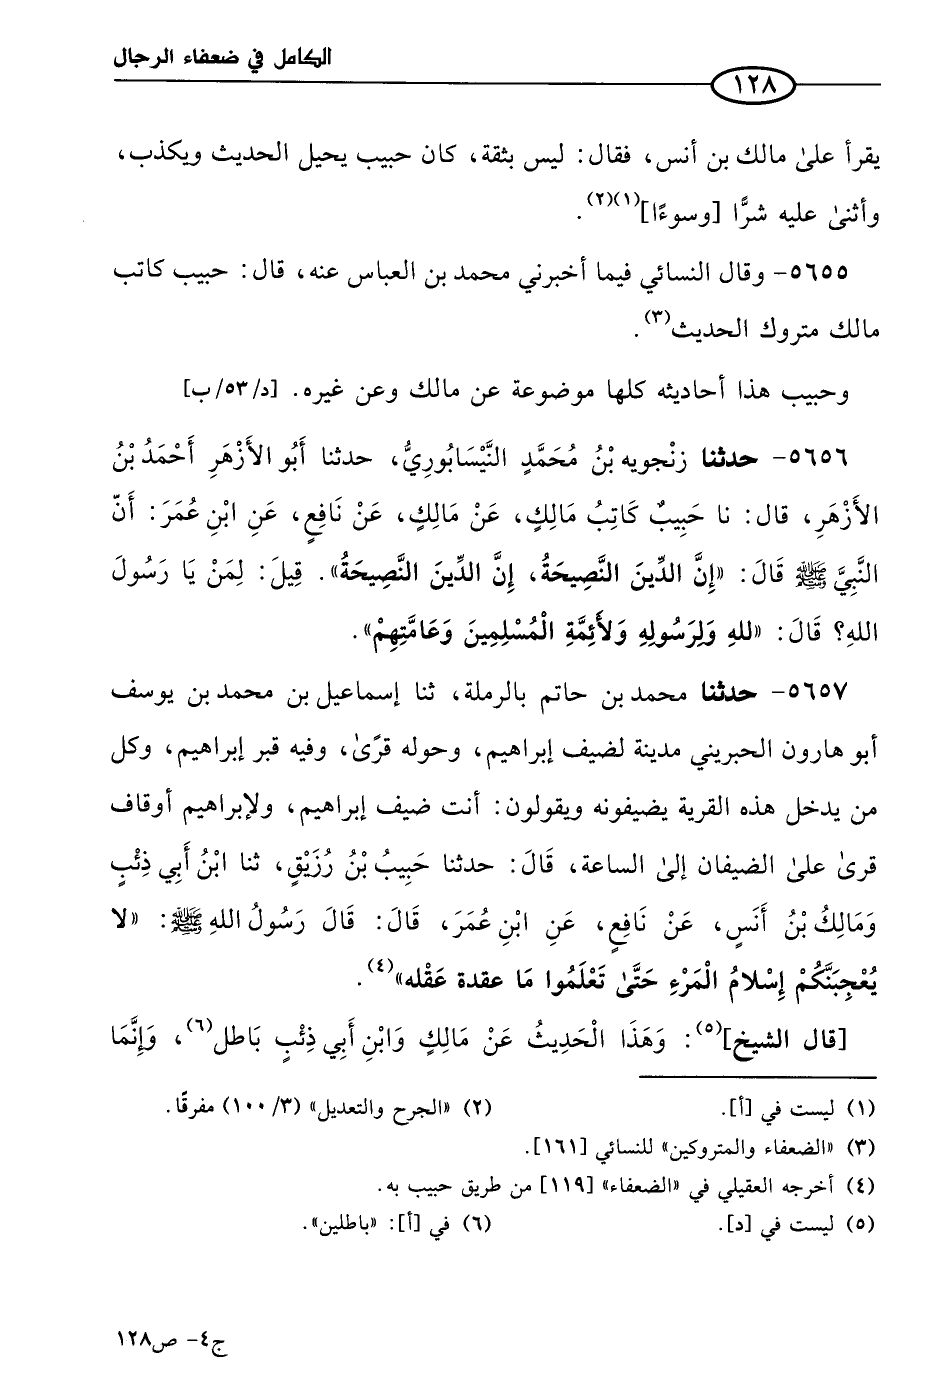 الكامل في ضعفاء الرجال
١٢٨
يقرأ علىٰ مالك بن أنس، فقال: ليس بثقة، كان حبيب يحيل الحديث ويكذب،
وأثنىٰ عليه شرًّا [وسوءًا](١)(٢).
٥٦٥٥- وقال النسائي فيما أخبرني محمد بن العباس عنه، قال: حبيب كاتب
مالك متروك الحديث(٣).
وحبيب هذا أحاديثه كلها موضوعة عن مالك وعن غيره. [د/٥٣/ب]
٥٦٥٦- حدثنا زنْجويه بْنُ مُحَمَّدٍ النَّيْسَابُورِيُّ، حدثنا أَبُو الأَزْهَرِ أَحْمَدُ بْنُ
الأَزْهَرِ، قال: نا حَبِيبٌ كَاتِبُ مَالِكٍ، عَنْ مَالِكٍ، عَنْ نَافِعٍ، عَنِ ابْنِ عُمَرَ: أَنّ
النَّبِيَّ ﷺ قَالَ: «إِنَّ الدِّينَ النَّصِيحَةُ، إِنَّ الدِّينَ النَّصِيحَةُ». قِيلَ: لِمَنْ يَا رَسُولَ
اللهِ؟ قَالَ: «للهِ وَلِرَسُولِهِ وَلأَئِمَّةِ الْمُسْلِمِينَ وَعَامَّتِهِمْ».
٥٦٥٧- حدثنا محمد بن حاتم بالرملة، ثنا إسماعيل بن محمد بن يوسف
أبو هارون الحبريني مدينة لضيف إبراهيم، وحوله قرًىٰ، وفيه قبر إبراهيم، وكل
من يدخل هذه القرية يضيفونه ويقولون: أنت ضيف إبراهيم، ولإبراهيم أوقاف
قرىٰ علىٰ الضيفان إلىٰ الساعة، قَالَ: حدثنا حَبِيبُ بْنُ رُزَيْقٍ، ثنا ابْنُ أَبِي ذِئْبٍ
وَمَالِكُ بْنُ أَنَسٍ، عَنْ نَافِعٍ، عَنِ ابْنِ عُمَرَ، قَالَ: قَالَ رَسُولُ اللهِ ﷺ: «لا
يُعْجِبَنَّكُمْ إِسْلامُ الْمَرْءِ حَتَّىٰ تَعْلَمُوا مَا عقدة عَقْله»(٤).
[قال الشيخ](٥): وَهَذَا الْحَدِيثُ عَنْ مَالِكٍ وَابْنِ أَبِي ذِئْبٍ بَاطل(٦)، وَإِنَّمَا
(١) ليست في [أ]. (٢) «الجرح والتعديل» (٣/ ١٠٠) مفرقًا.
(٣) «الضعفاء والمتروكين» للنسائي [١٦١].
(٤) أخرجه العقيلي في «الضعفاء» [١١٩] من طريق حبيب به.
(٥) ليست في [د]. (٦) في [أ]: «باطلين».
ج٤- ص١٢٨